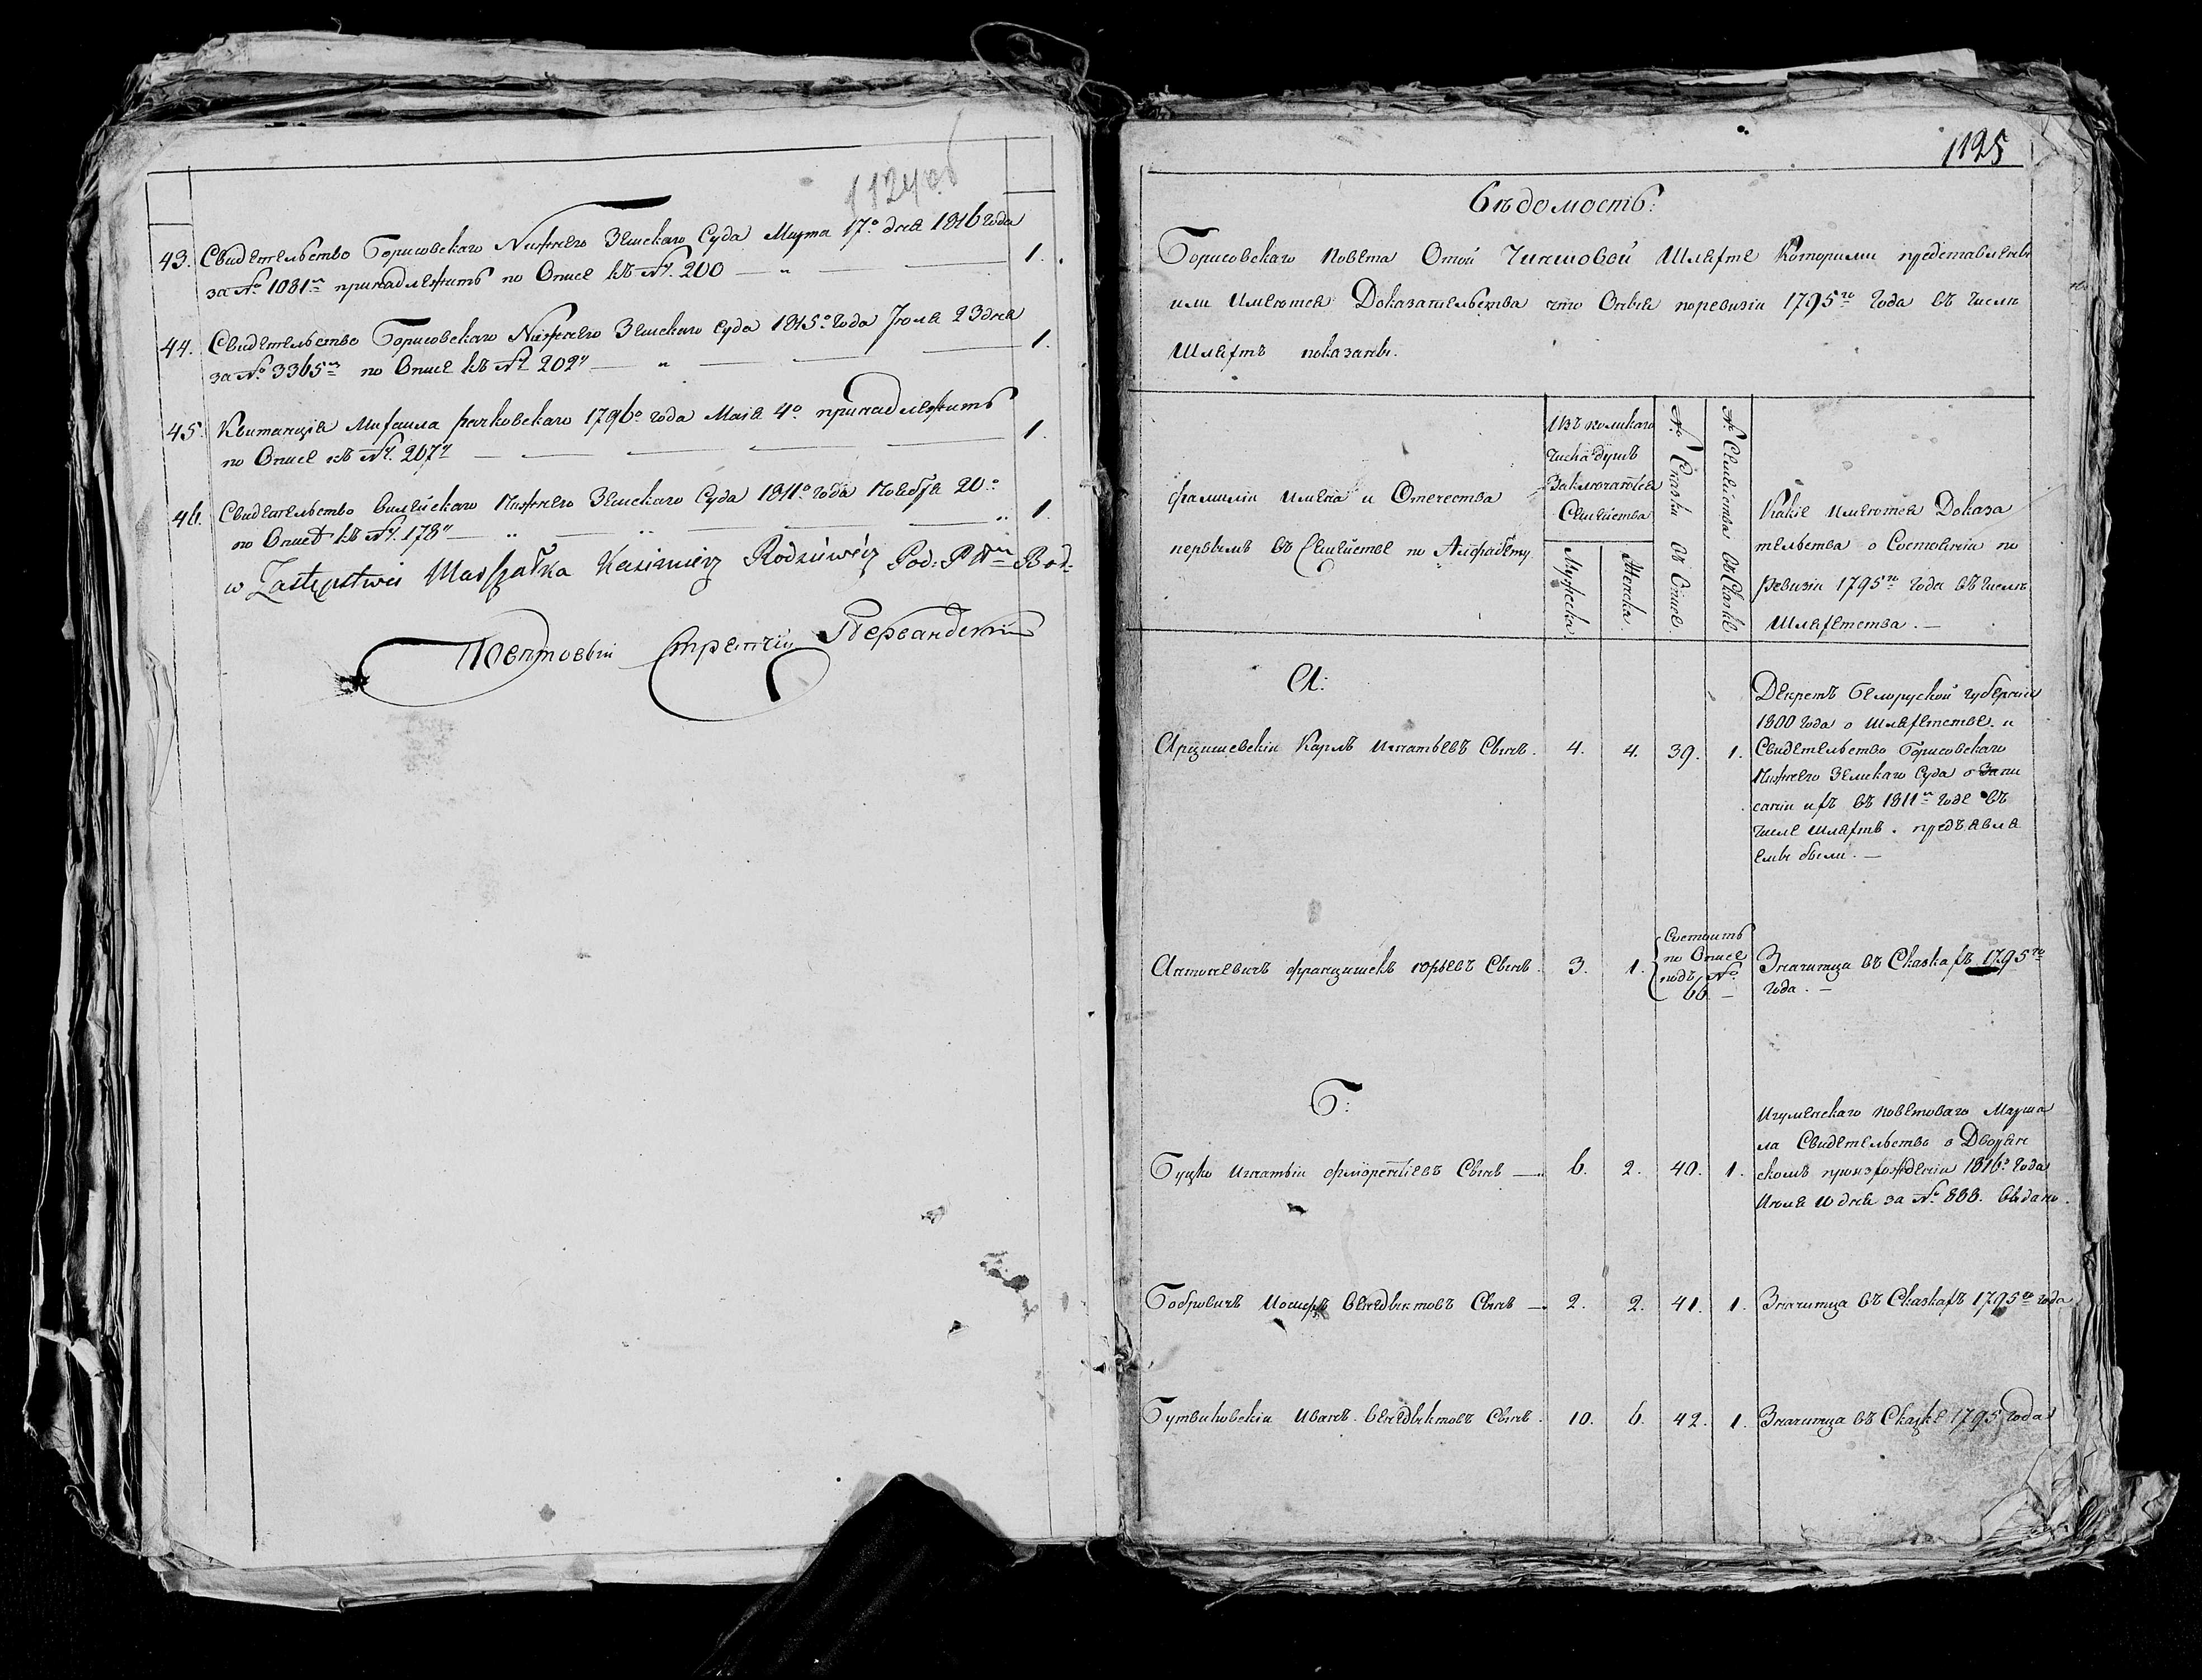 1124об
43. Свидетельство Борисовского Нижнего Земского Суда Марта 17º дня 1816 года
за № 1081м принадлежитъ по Описе къ № 200 — „ — 1.
44. Свидетельство Борисовского Нижнего Земского Суда 1815º года Июля 23 дня
за № 3365м по Описе къ № 202у — „ — 1.
45. Квитанция Михаила Рачковского 1796º года Мая 4º принадлежитъ
по Описе къ № 207у — 1.
46. Свидетельство Вилейского Нижнего Земского Суда 1811º года Ноября 20º
по Описе къ № 178у — „ — 1.
w Zastępstwie Marszałka Kazimierz Rodziewicz Pod: P
Поветовый Стряпчий
1125
Ведомость:
Борисовского Повета Отой Чиншовой Шляхте Которыми представлены
или Имеются Доказательства что Оныя поревизiи 1795го Года въ числе
Шляхтъ показаны.
Фамилiи Имена и Отечества
первымъ въ Семействе по Алфабету
Изъ коликаго
числа душъ
Заключаются
Семейства
Мужеска
Женска.
№ Сказки въ Описе.
№ Семейства въ Сказке
Какiе Имеются Доказа
тельства о Состоянiи по
Ревизiи 1795го Года въ числе
Шляхетства. —
А:
Арцишевскiи Карлъ Игнатьевъ Сынъ. 4. 4. 39. 1.
Декретъ Белоруской губернiи
1800 Года о Шляхетстве. и
Свидетельство Борисовского
Нижнего Земскаго Суда о Запи
санiи ихъ въ 1811м Годе въ
числе Шляхтъ. предъявля
емы были. —
Антоневичъ Францишекъ Юрьевъ Сынъ. 3. 1.
Состоитъ
по Описе
подъ №
66. —
Значитца въ Сказкахъ 1795го
Года. —
Б:
Буцко Игнатыи Флiорентiевъ Сынъ — 6. 2. 40. 1.
Игуменскаго Поветоваго Марша
ла Свидетельство о Дворян
скомъ произхожденiи 1816º Года
Июля 10 дня за № 888. выдано.
Бобровичъ Иосифъ Венедыктовъ Сынъ — 2. 2. 41. 1. Значитца въ Сказкахъ 1795го года
Бутвиловскiи Иванъ Венедыктовъ Сынъ. 10. 6. 42. 1. Значитца въ Сказке 1795 Года